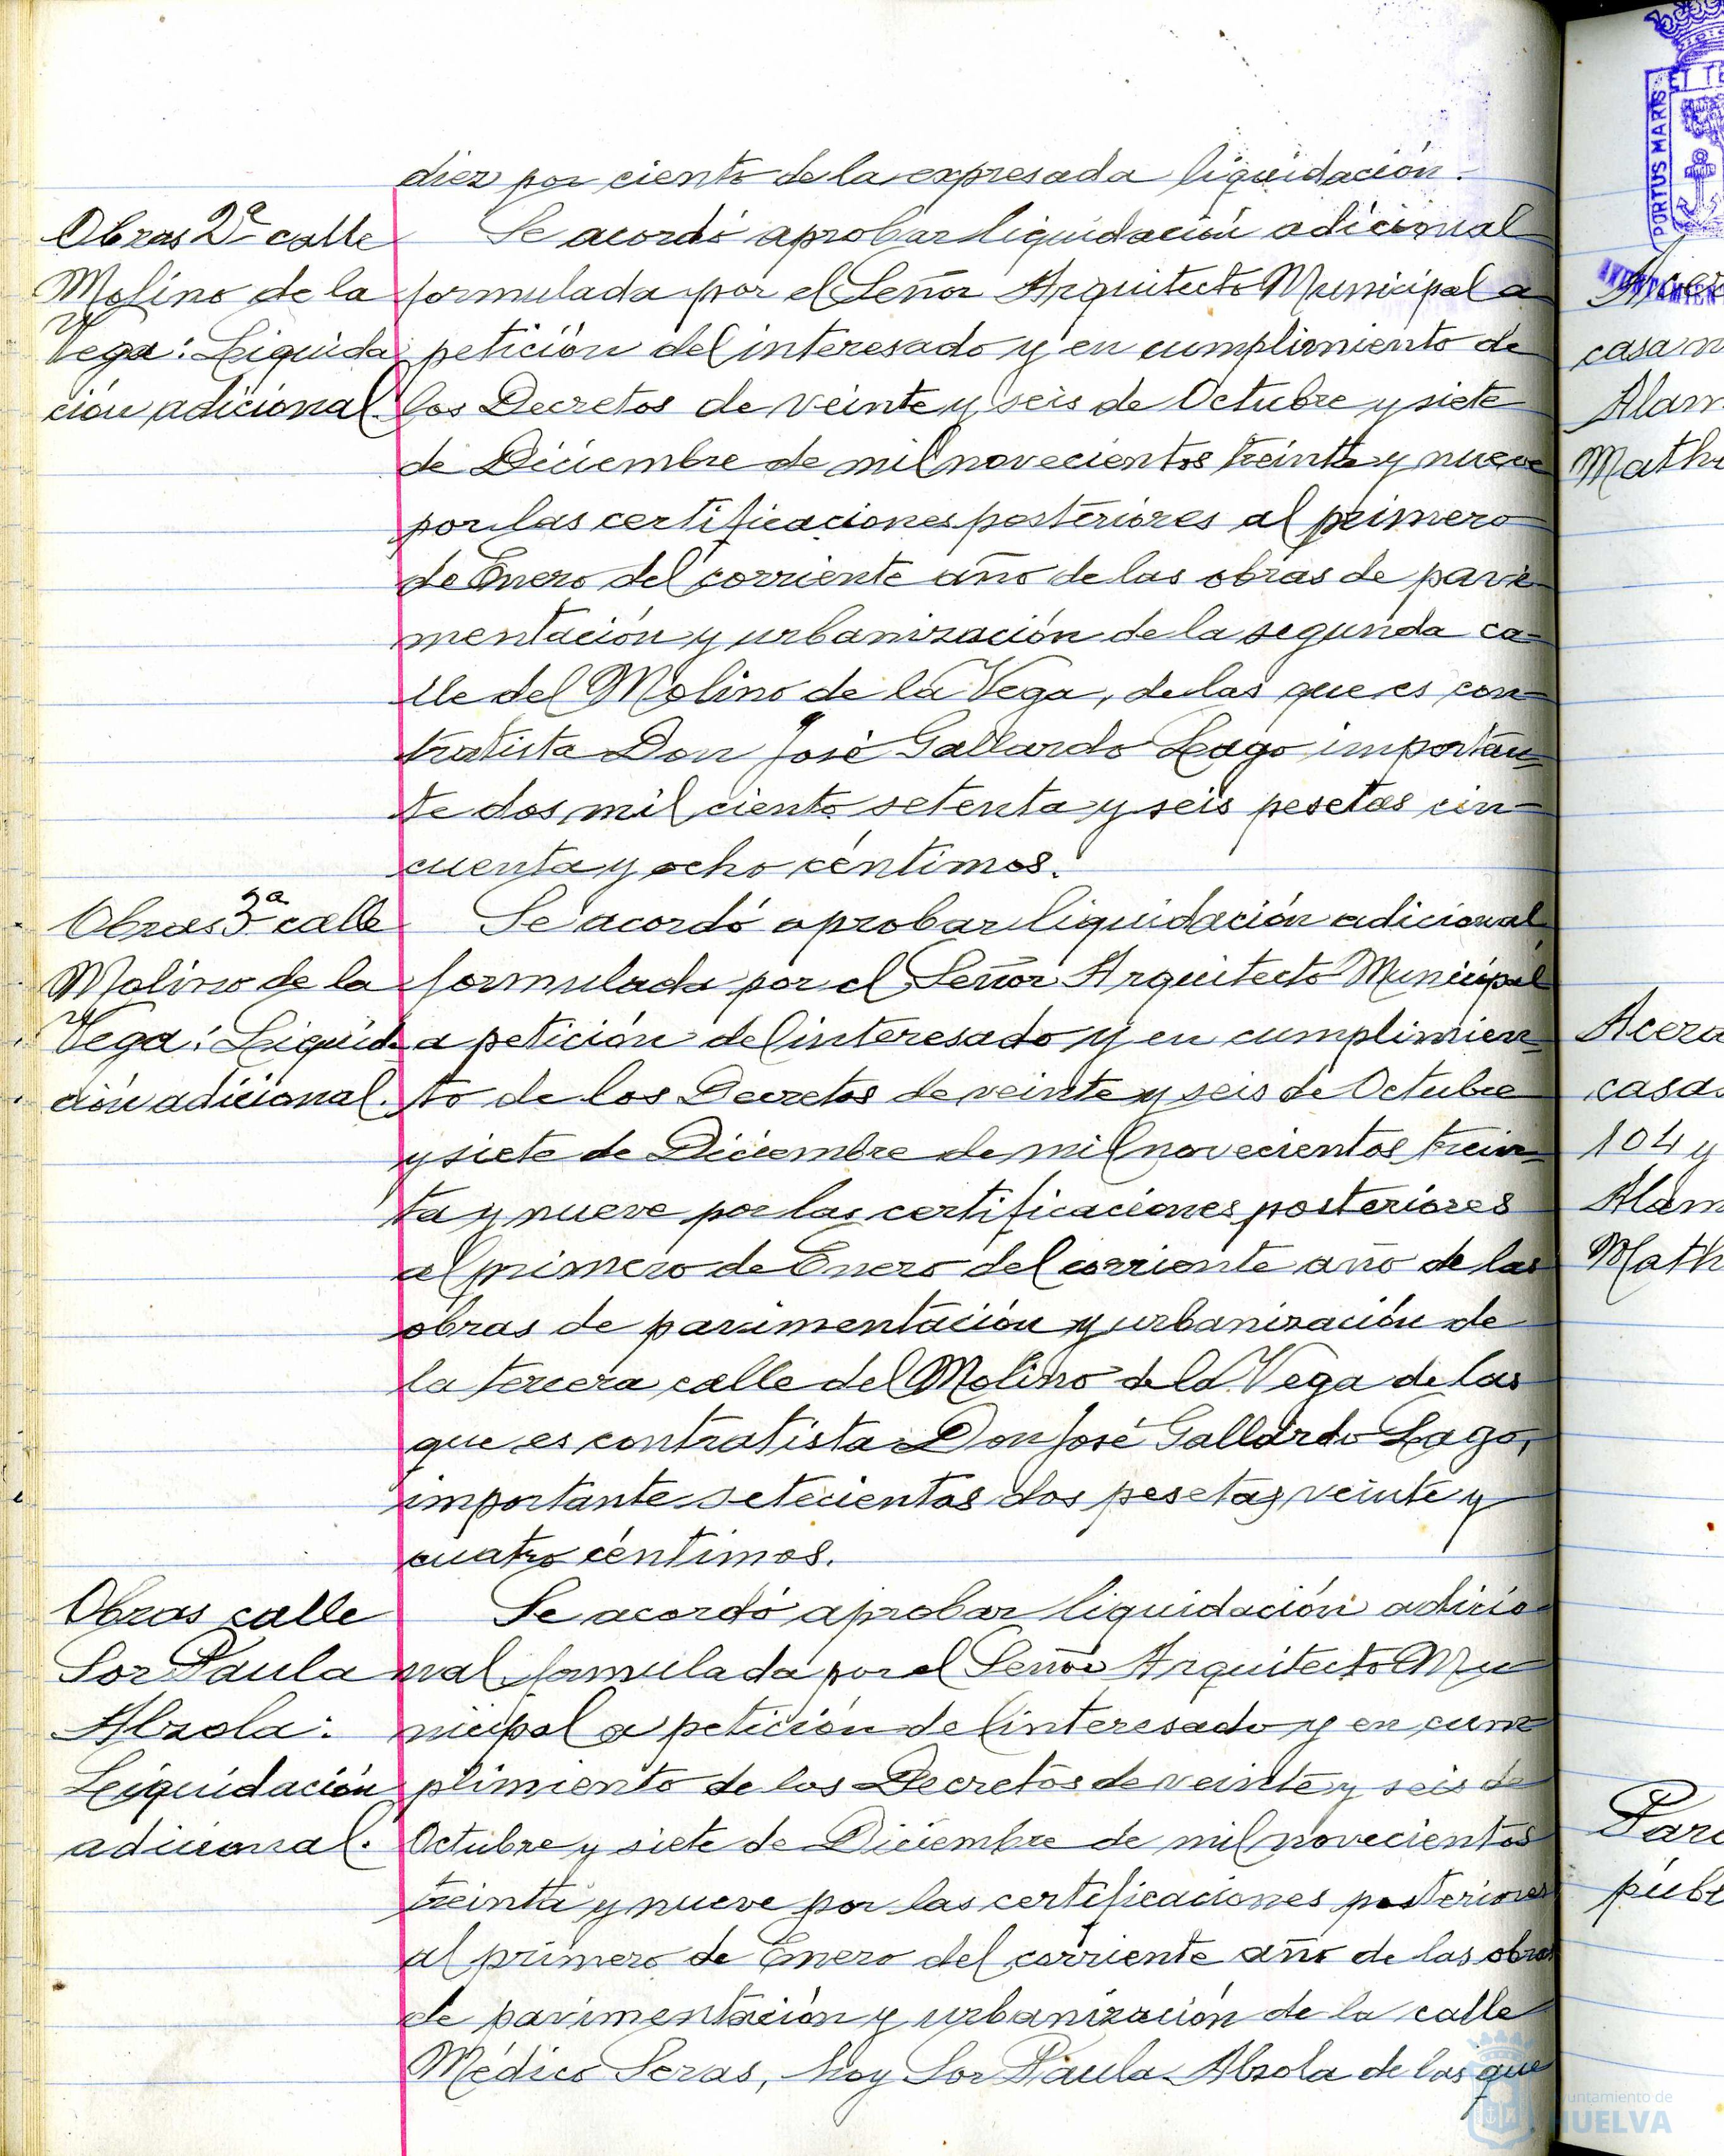 diez por ciento de la expresada liquidación.
Obras 2ª calle
Molino de la
Vega: Liquida
ción adicional.
Se acordó aprobar liquidación adicional
formulada por el Señor Arquitecto Municipal a
petición del interesado y en cumplimiento de
los Decretos de veinte y seis de Octubre y siete
de Diciembre de mil novecientos treinta y nueve
por las certificaciones posteriores al primero
de Enero del corriente año de las obras de pavi-
mentación y urbanización de la segunda ca-
lle del Molino de la Vega, de las que es con-
tratista Don José Gallardo Lago importan-
te dos mil ciento setenta y seis pesetas cin-
cuenta y ocho céntimos.
Obras 3ª calle
Molino de la
Vega: Liquida
ción adicional.
Se acordó aprobar liquidación adicional
formulada por el Señor Arquitecto Municipal
a petición del interesado y en cumplimien-
to de los Decretos de veinte y seis de Octubre
y siete de Diciembre de mil novecientos trein-
ta y nueve por las certificaciones posteriores
al primero de Enero del corriente año de las
obras de pavimentación y urbanización de
la tercera calle del Molino de la Vega de las
que es contratista Don José Gallardo Lago,
importante setecientas dos pesetas veinte y
cuatro céntimos.
Obras calle
Sor Paula
Alzola:
Liquidación
adicional.
Se acordó aprobar liquidación adicio-
nal formulada por el Señor Arquitecto Mu-
nicipal a petición del interesado y en cum-
plimiento de los Decretos de veinte y seis de
Octubre y siete de Diciembre de mil novecientos
treinta y nueve por las certificaciones posteriores
al primero de Enero del corriente año de las obras
de pavimentación y urbanización de la calle
Médico Seras, hoy Sor Paula Alzola de las que
PORTUS MARIS ET TE
casa n
Alam
Math
Acera
casas
104 y
Alam
Math
Par
públ
Ayuntamiento de
HUELVA